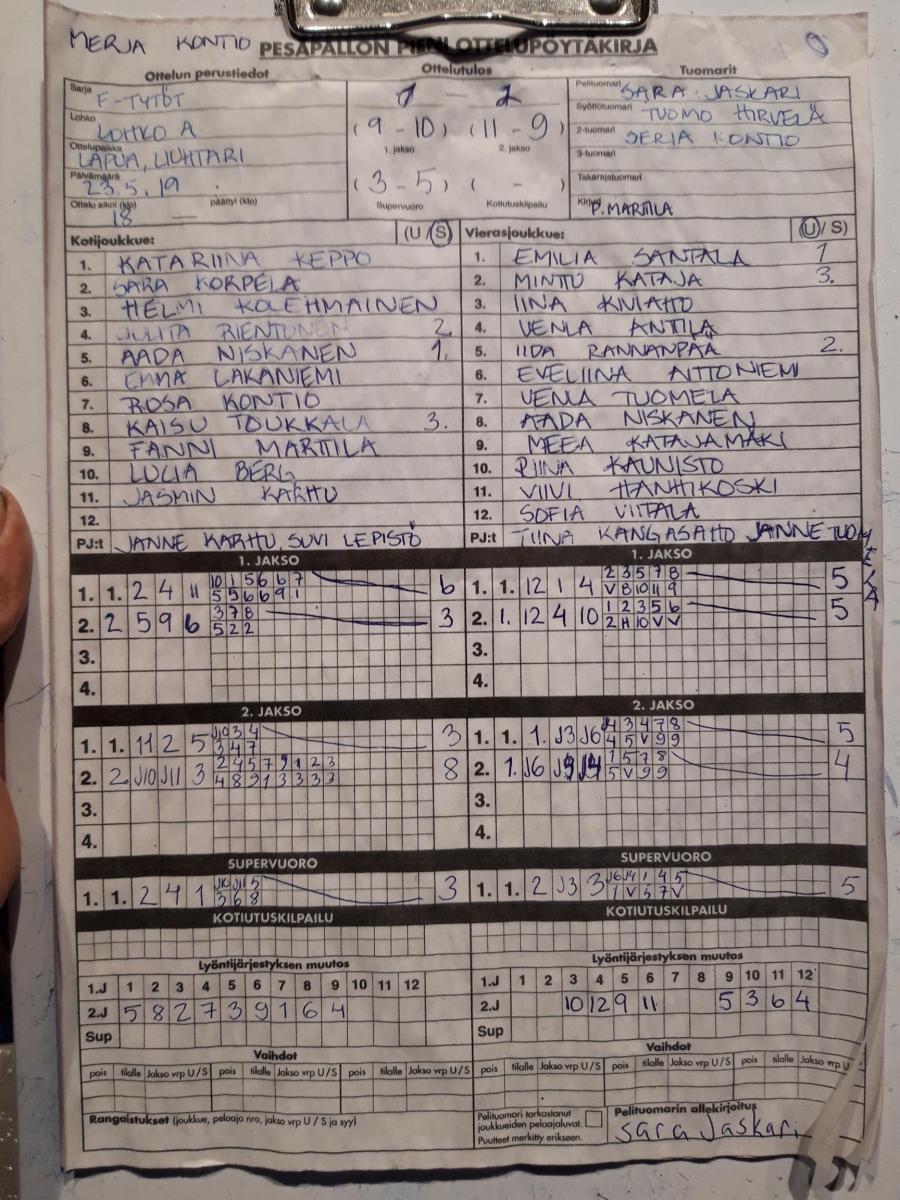 MERJA KONTIO PESÄPALLON PIENI OTTELUPÖYTÄKIRJA
Ottelun perustiedot
Sarja F-TYTÖT
Lohko LOHKO A
Ottelupaikka LAPUA, LIUHTARI
Päivämäärä 23.5.19
Ottelu alkoi (klo) 18 — päättyi (klo)
Ottelutulos
1 – 2
(9 - 10) (11 - 9)
1. jakso 2. jakso
(3 - 5) ( - )
Supervuoro Kotiutuskilpailu
Tuomarit
Pelituomari SARA JASKARI
Syöttötuomari TUOMO HIRVELÄ
2-tuomari SERJA KONTIO
3-tuomari
Takarajatuomari
Kirjuri P. MARTTILA
Kotijoukkue: (U / S)
1. KATARIINA KEPPO
2. SARA KORPELA
3. HELMI KOLEHMAINEN
4. JULIIA RIENTONEN 2.
5. AADA NISKANEN 1.
6. EMMA LAKANIEMI
7. ROSA KONTIO
8. KAISU TOUKKALA 3.
9. FANNI MARTTILA
10. LUCIA BERG
11. JASMIN KARHU
12.
PJ:t JANNE KARHU, SUVI LEPISTÖ
Vierasjoukkue: (U / S)
1. EMILIA SANTALA 1
2. MINTTU KATAJA 3.
3. IINA KIVIAHO
4. VENLA ANTILA
5. IIDA RANNANPÄÄ 2.
6. EVELIINA AITTONIEMI
7. VENLA TUOMELA
8. AADA NISKANEN
9. MEEA KATAJAMÄKI
10. RIINA KAUNISTO
11. VIIVI HANHIKOSKI
12. SOFIA VIITALA
PJ:t TIINA KANGASAHO JANNE TUOMELA
1. JAKSO
1. 1. 2 4 11 10 1 5 6 6 7 6
5 5 6 6 9 1
2. 2 5 9 6 3 7 8 3
5 2 2
3.
4.
1. JAKSO
1. 1. 12 1 4 2 3 5 7 8 5
V 8 10 11 9
2. 1. 12 4 10 1 2 3 5 6 5
2 H 10 V V
3.
4.
2. JAKSO
1. 1. 11 2 5 J10 3 4 3
3 4 7
2. 2 J10 J11 3 2 4 5 7 9 1 2 3 8
4 8 9 1 3 3 3 3
3.
4.
2. JAKSO
1. 1. 1. J3 J6 J4 3 4 7 8 5
4 5 V 9 9
2. 1. J6 1 5 7 8 4
5 V 9 9
3.
4.
SUPERVUORO
1. 1. 2 4 1 J10 J11 5 3
3 6 8
SUPERVUORO
1. 1. 2 J3 3 J6 J4 1 4 5 5
1 V 5 7 V
KOTIUTUSKILPAILU
Lyöntijärjestyksen muutos
1.J 1 2 3 4 5 6 7 8 9 10 11 12
2.J 5 8 2 7 3 9 1 6 4
Sup
KOTIUTUSKILPAILU
Lyöntijärjestyksen muutos
1.J 1 2 3 4 5 6 7 8 9 10 11 12
2.J 10 12 9 11 5 3 6 4
Sup
Vaihdot
pois tilalle Jakso vrp U / S pois tilalle Jakso vrp U / S pois tilalle Jakso vrp U / S
Vaihdot
pois tilalle Jakso vrp U / S pois tilalle Jakso vrp U / S pois tilalle Jakso vrp U
Rangaistukset (joukkue, pelaaja nro, jakso vrp U / S ja syy)
Pelituomari tarkastanut
joukkueiden pelaajaluvat.
Puutteet merkitty erikseen.
Pelituomarin allekirjoitus
Sara Jaskari